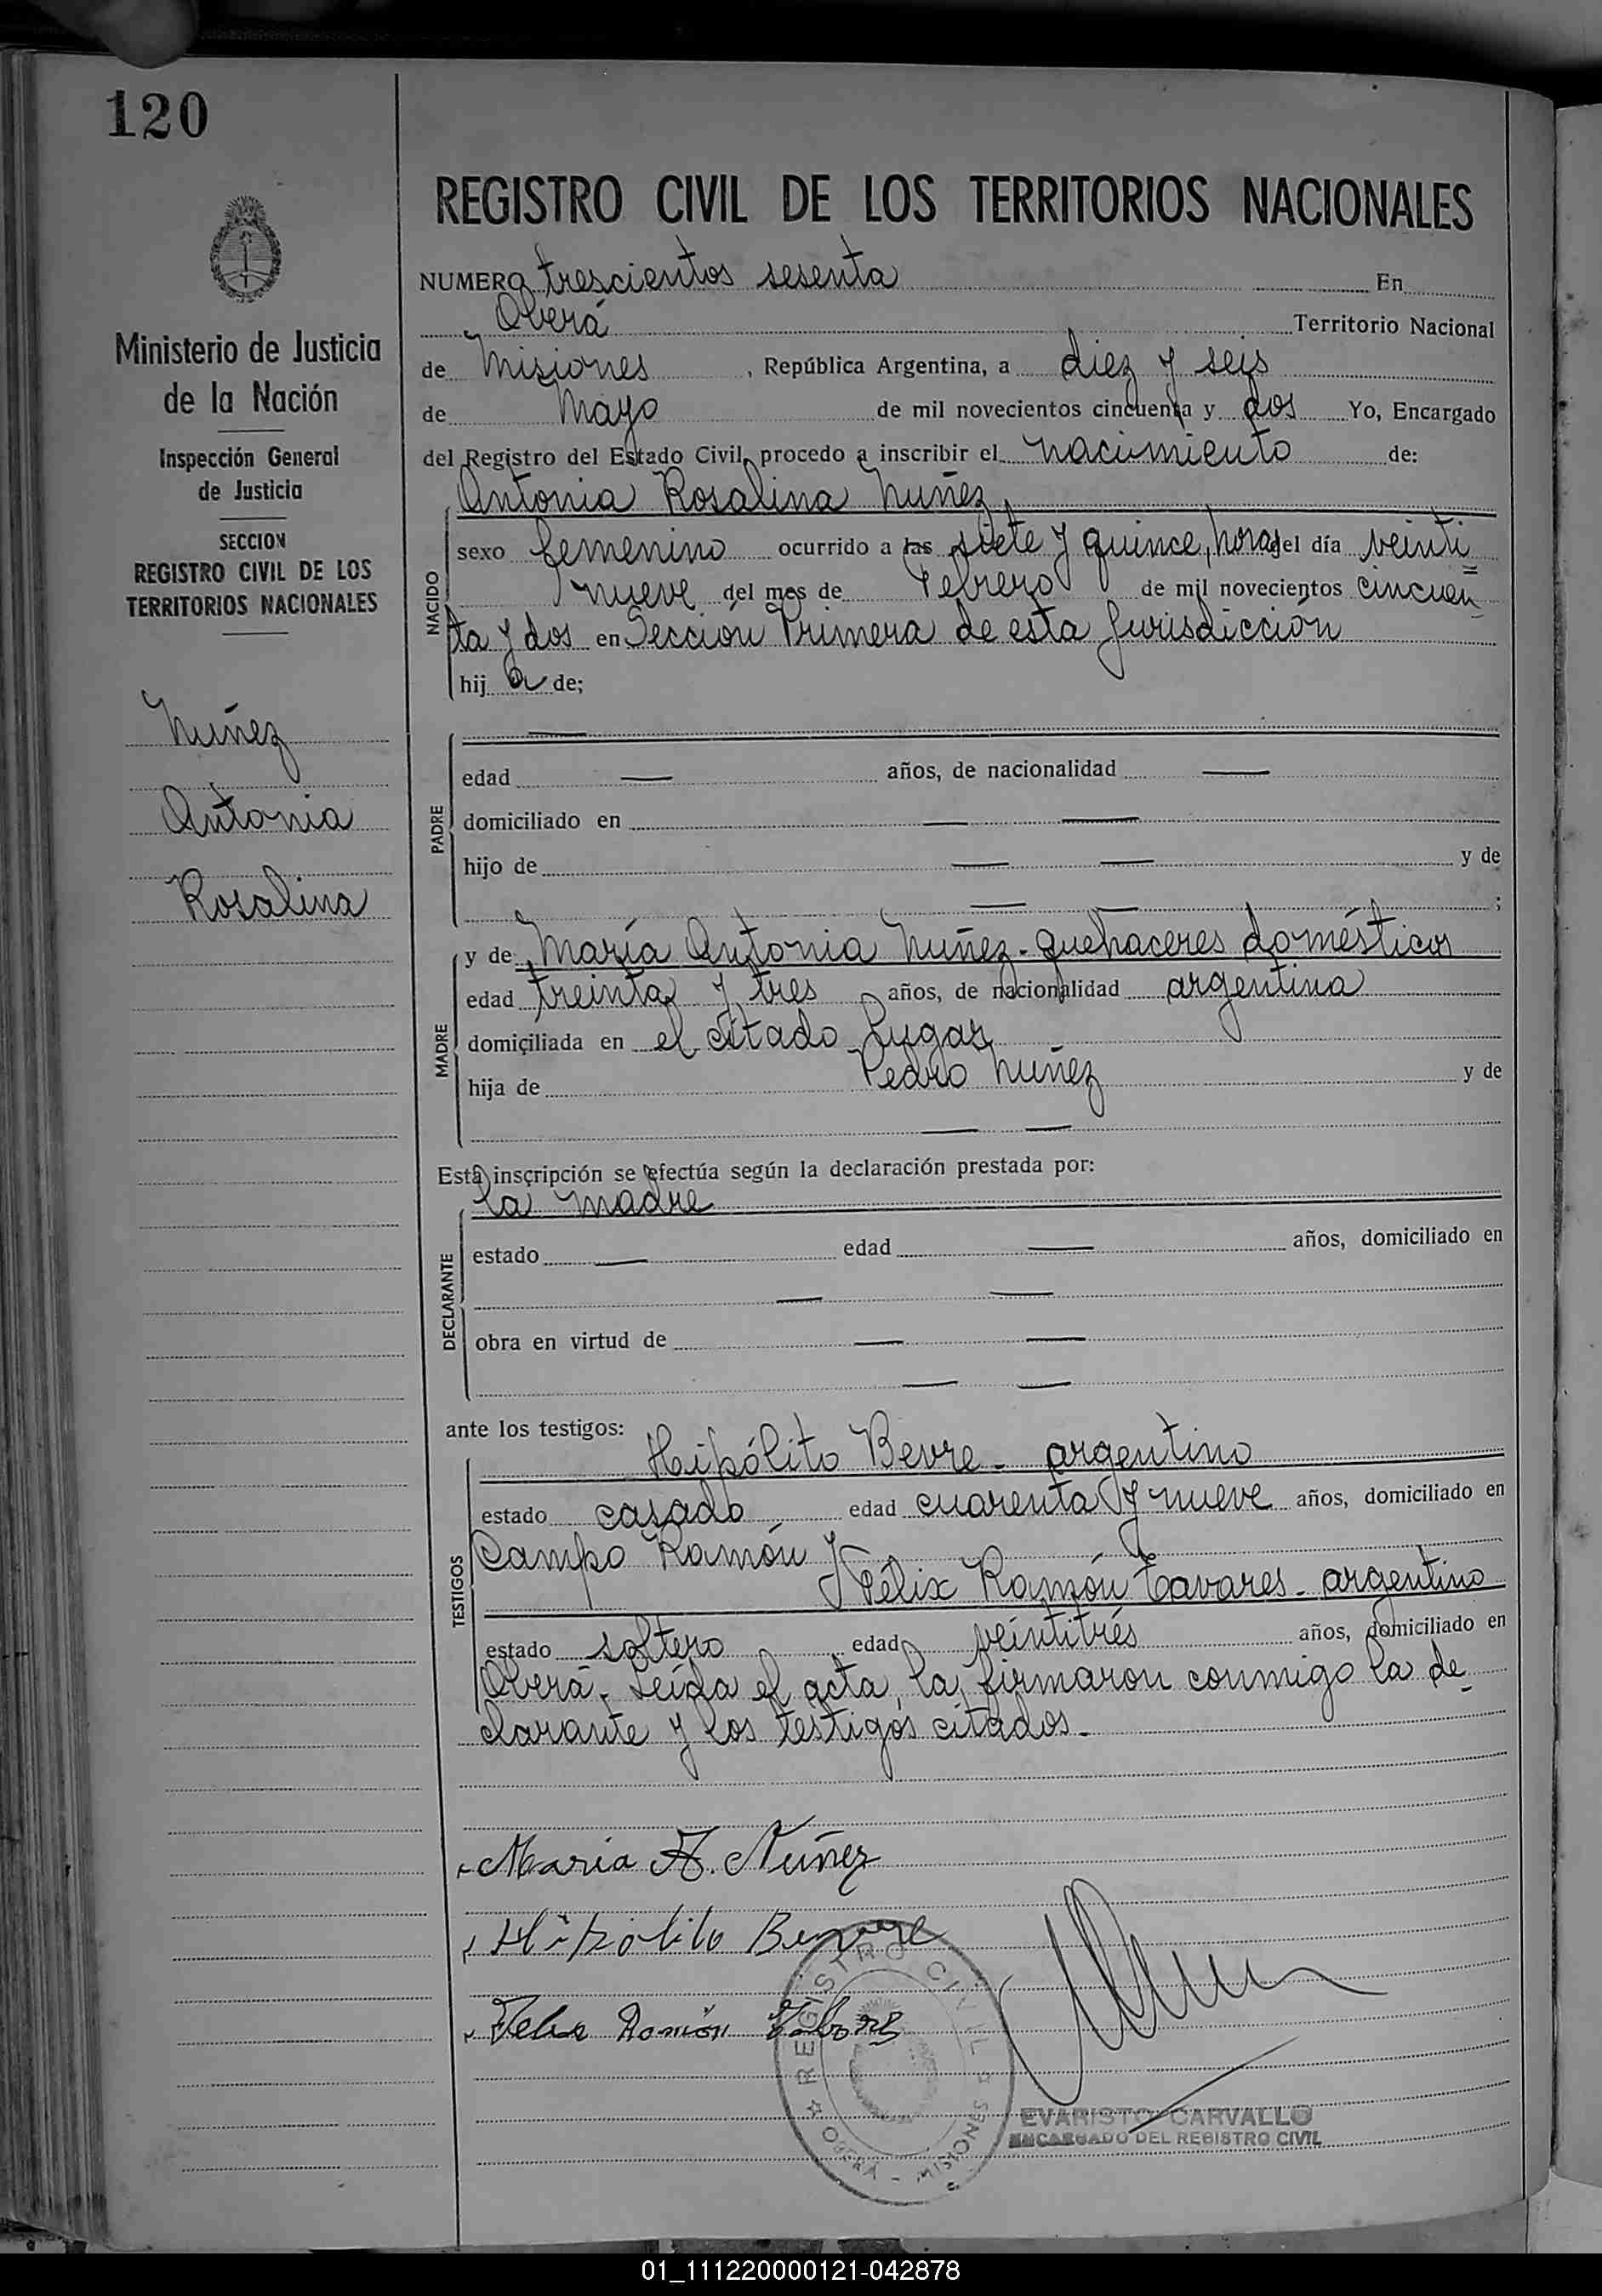 120
REGISTRO CIVIL DE LOS TERRITORIOS NACIONALES
Ministerio de Justicia
de la Nación
Inspección General
de Justicia
SECCION
REGISTRO CIVIL DE LOS
TERRITORIOS NACIONALES
Nuñez
Antonia
Rosalina
NUMERO trescientos sesenta En
Oberá Territorio Nacional
de Misiones, República Argentina, a diez y seis
de Mayo de mil novecientos cincuenta y dos Yo, Encargado
del Registro del Estado Civil, procedo a inscribir el nacimiento de:
Antonia Rosalina Nuñez,
NACIDO
sexo femenino ocurrido a las siete y quince, horas del día veinti
nueve del mes de Febrero de mil novecientos cincuen
ta y dos en Sección Primera de esta Jurisdicción
hija de;
PADRE
edad — años, de nacionalidad —
domiciliado en — —
hijo de — — y de
— — ;
MADRE
y de María Antonia Nuñez - quehaceres domésticos
edad treinta y tres años, de nacionalidad argentina
domiciliada en el citado lugar
hija de Pedro Nuñez y de
— —
Esta inscripción se efectúa según la declaración prestada por:
la madre
DECLARANTE
estado — edad — años, domiciliado en
— —
obra en virtud de — —
— —
ante los testigos:
TESTIGOS
Hipólito Bevre - argentino
estado casado edad cuarenta y nueve años, domiciliado en
Campo Ramón y
Félix Ramón Tavares - argentino
estado soltero edad veintitrés años, domiciliado en
Oberá. Leída el acta, la firmaron conmigo la de
clarante y los testigos citados.-
Maria A. Nuñez
Hipolito
Felix Ramón
REGISTRO CIVIL
OBERÁ - MISIONES
EVARISTO CARVALLO
ENCARGADO DEL REGISTRO CIVIL
01_111220000121-042878